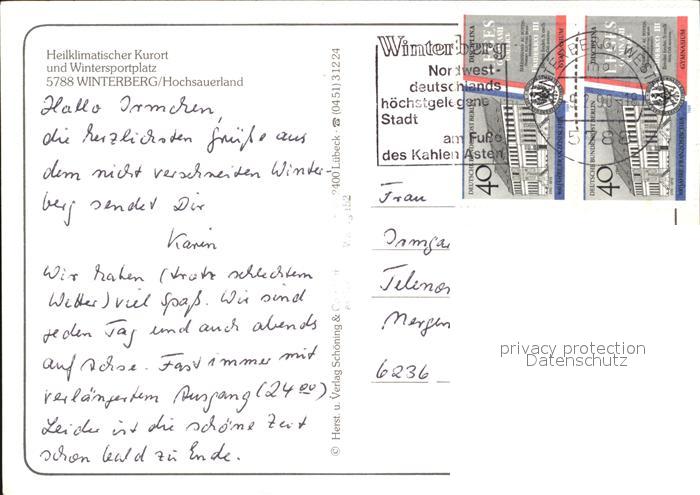 Heilklimatischer Kurort
und Wintersportplatz
5788 WINTERBERG/Hochsauerland
Hallo Irmchen,
die herzlichsten Grüße aus
dem nicht verschneiten Winter-
berg sendet Dir
Karin
Wir haben (trotz schlechtem
Wetter) viel Spaß. Wir sind
jeden Tag und auch abends
auf Achse. Fast immer mit
verlängertem Ausgang (24 00)
Leider ist die schöne Zeit
schon bald zu Ende.
© Herst. u. Verlag Schöning &
2400 Lübeck · ☎ (04 51) 3 12 24
Winterberg
Nordwest-
deutschlands
höchstgelegene
Stadt
am Fuße
des Kahlen Asten
5788
DISCIPLINA
GYMNASIUM
DEUTSCHE BUNDESPOST BERLIN
40
DISCIPLINA
GYMNASIUM
DEUTSCHE BUNDESPOST BERLIN
40
Frau
Irmga
Mergen
6236
privacy protection
Datenschutz